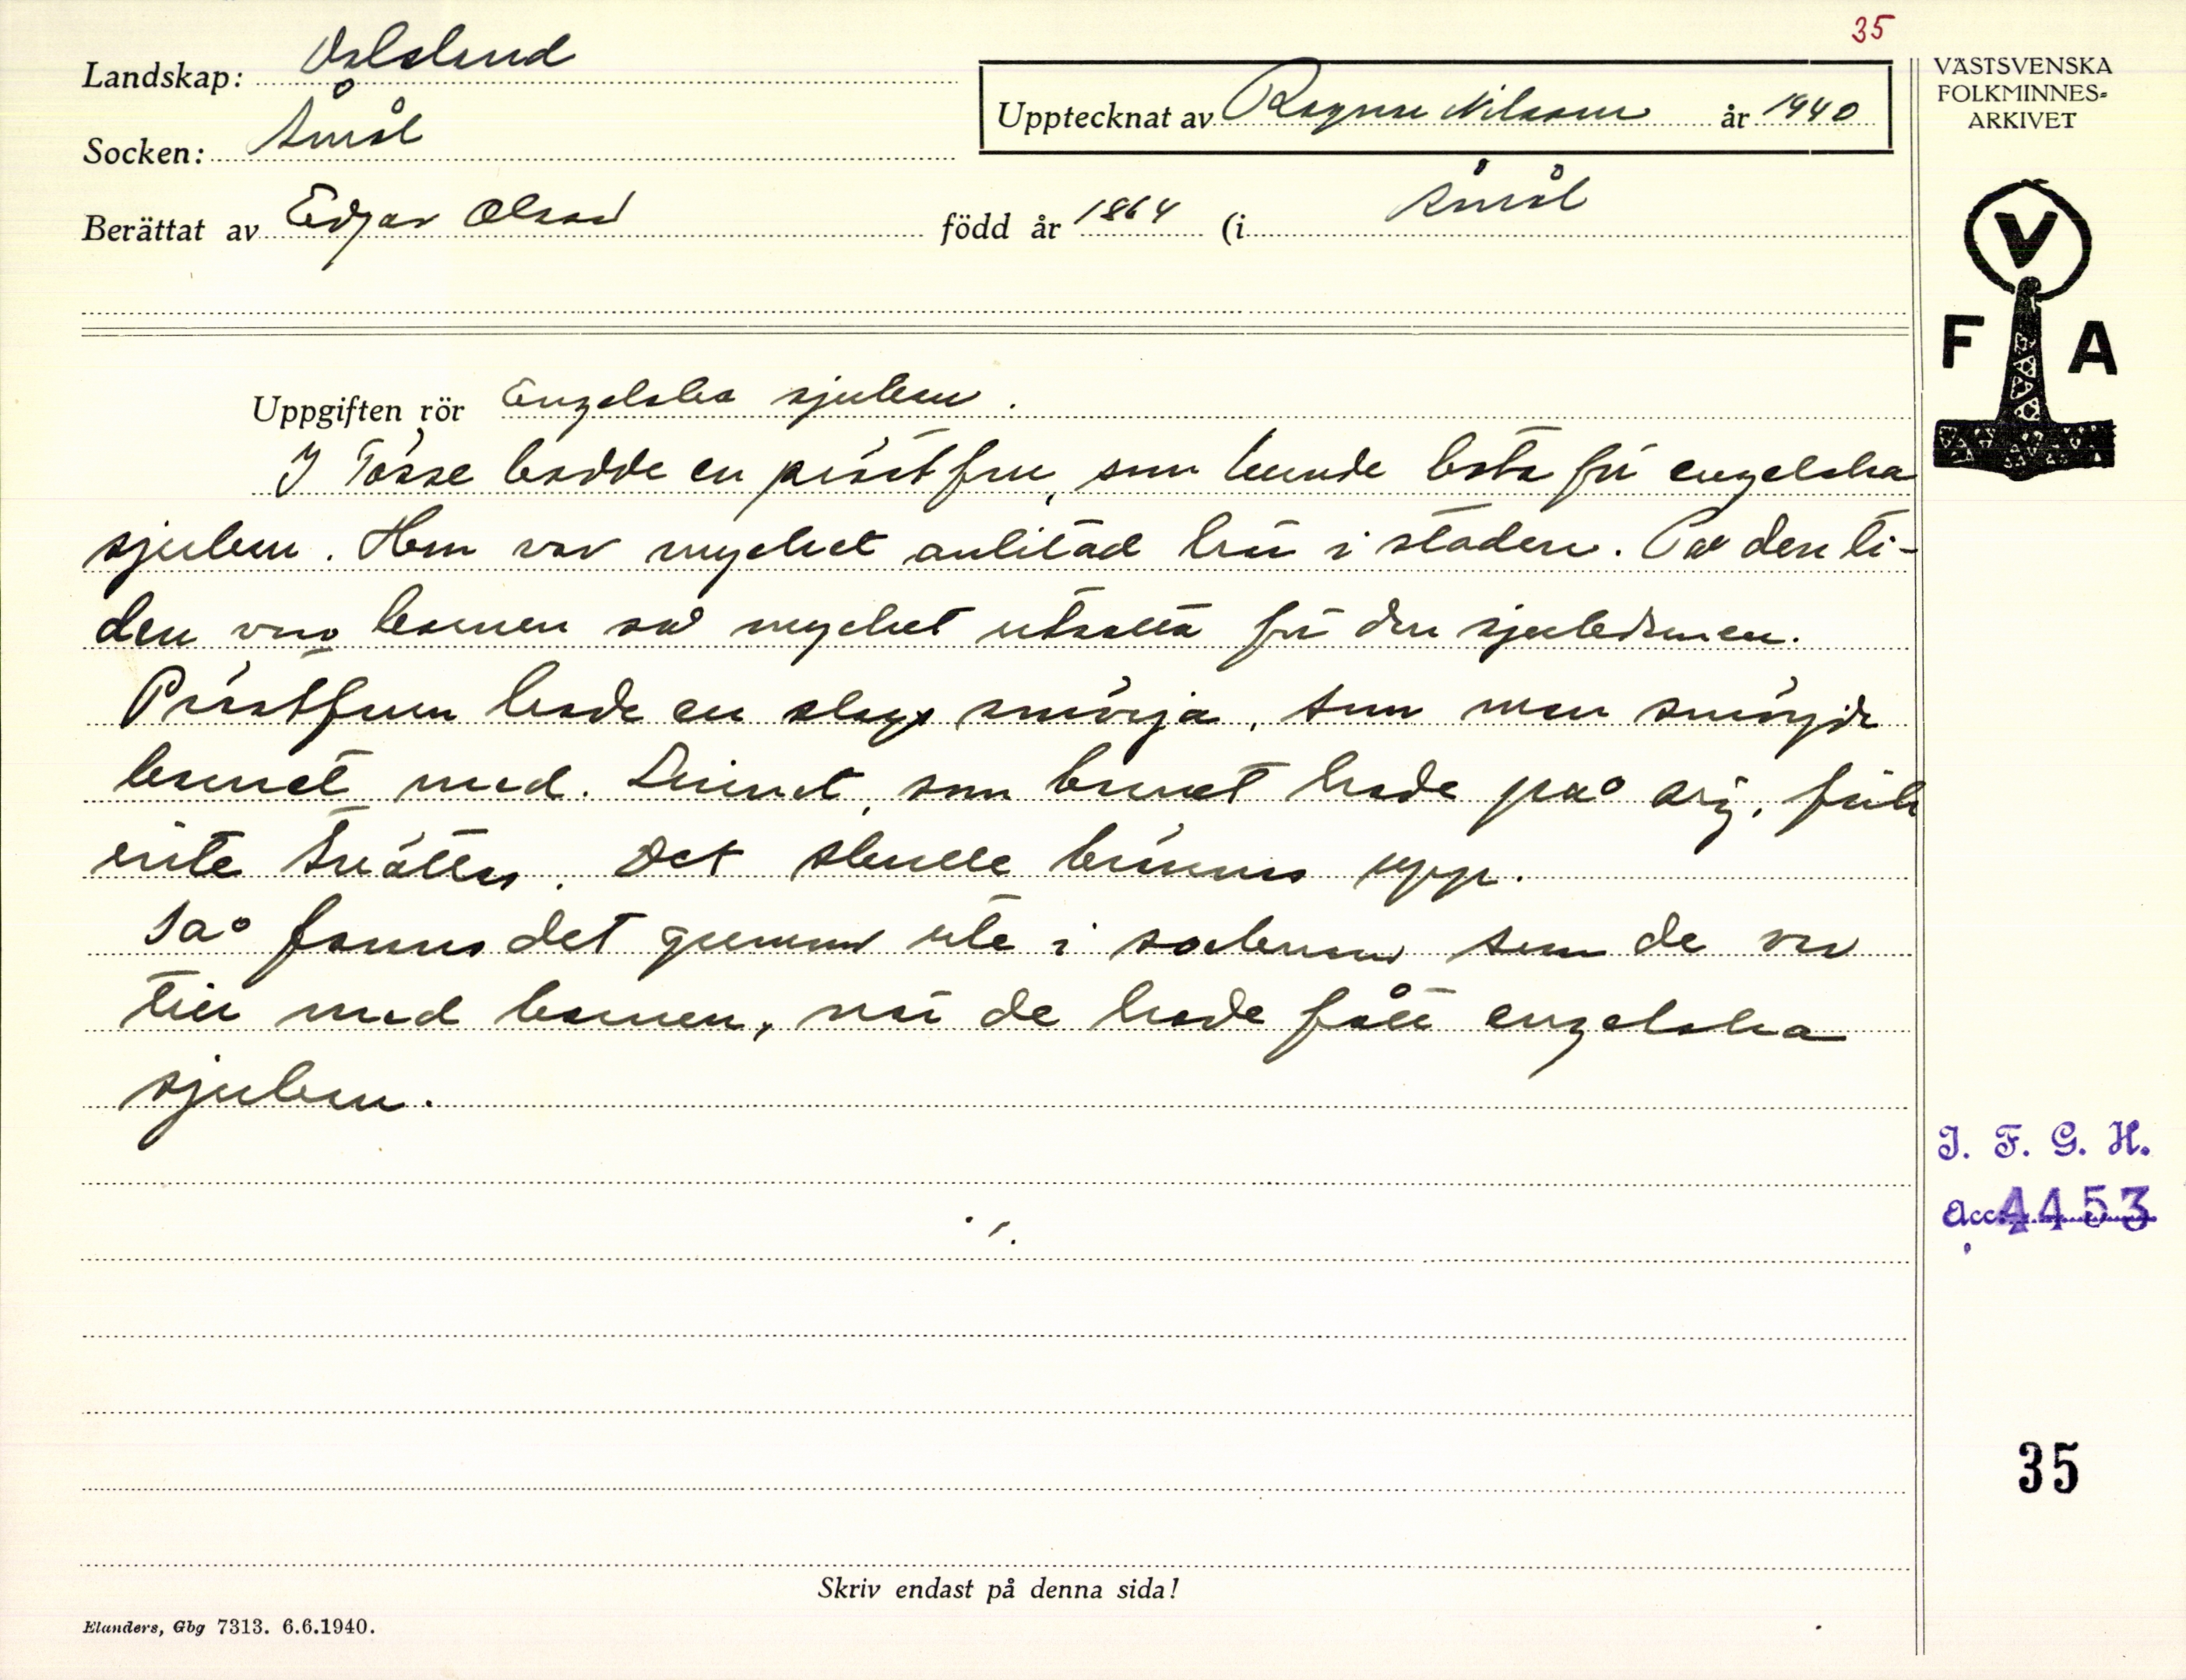 35
Landskap: Dalsland
Socken: Åmål
Upptecknat av Ragnar Nilsson år 1940
Berättat av Edgar Olsson född år 1864 (i Åmål
VÄSTSVENSKA
FOLKMINNES-
ARKIVET
V
F A
Uppgiften rör Engelska sjukan.
I Tösse bodde en prästfru, som kunde bota för engelska
sjukan. Hon var mycket anlitad här i staden. På den ti-
den voro barnen så mycket utsatta för den sjukdomen.
Prästfrun hade en slags smörja, som man smörjde
barnet med. Linnet, som barnet hade på sig, fick
inte tvättas. Det skulle brännas upp.
Så fanns det gummor ute i socknen som de var
till med barnen, när de hade fått engelska
sjukan.
I. F. G. H.
Acc. 4453
35
Skriv endast på denna sida!
Elanders, Gbg 7313. 6.6.1940.